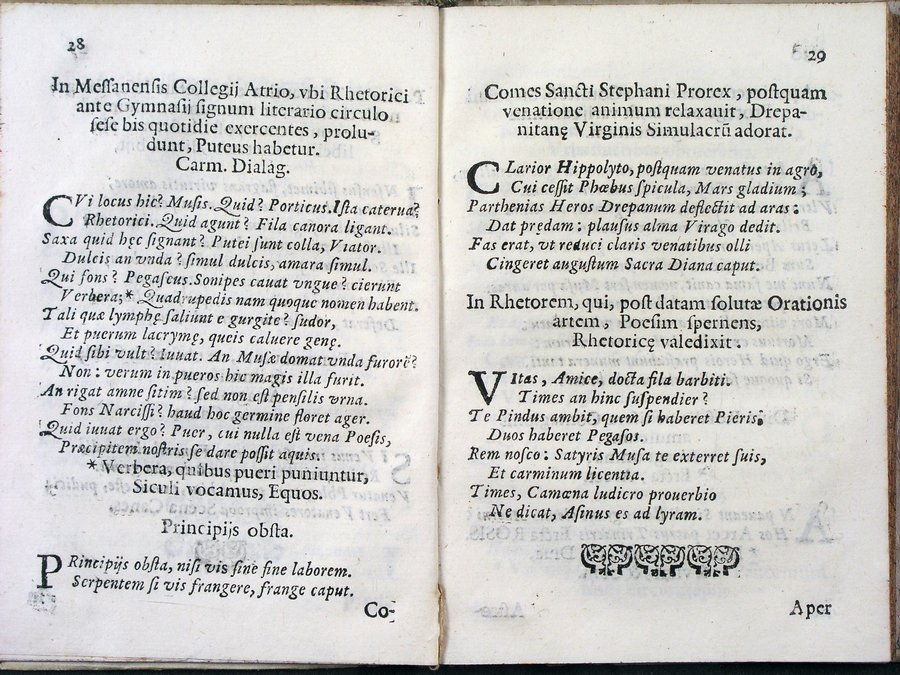 28
In Messanensis Collegii Atrio, vbi Rhetorici
ante Gymnasii signum literario circulo
sese bis quotidie exercentes, prolu-
dunt, Puteus habetur.
Carm. Dialag.
CVi locus hic? Musis. Quid? Porticus. Ista caterua?
Rhetorici. Quid agunt? Fila canora ligant.
Saxa quid hęc signant? Putei sunt colla, Viator.
Dulcis an vnda? simul dulcis, amara simul.
Qui fons? Pegaseus. Sonipes cauat vngue? cierunt
Verbera;* Quadrupedis nam quoque nomen habent.
Tali quæ lymphę saliunt e gurgite? sudor,
Et puerum lacrymę, queis caluere genę.
Quid sibi vult? Iuuat. An Musæ domat vnda furorē?
Non: verum in pueros hic magis illa furit.
An rigat amne sitim? sed non est pensilis vrna.
Fons Narcissi? haud hoc germine floret ager.
Quid iuuat ergo? Puer, cui nulla est vena Poesis,
Præcipitem nostris se dare possit aquis.
*Verbera, quibus pueri puniuntur,
Siculi vocamus, Equos.
Principijs obsta.
PRincipijs obsta, nisi vis sine fine laborem.
Serpentem si vis frangere, frange caput.
Co-
29
Comes Sancti Stephani Prorex, postquam
venatione animum relaxauit, Drepa-
nitanę Virginis Simulacrū adorat.
CLarior Hippolyto, postquam venatus in agro,
Cui cessit Phœbus spicula, Mars gladium;
Parthenias Heros Drepanum deflectit ad aras:
Dat prędam: plausus alma Virago dedit.
Fas erat, vt reduci claris venatibus olli
Cingeret augustum Sacra Diana caput.
In Rhetorem, qui, post datam solutæ Orationis
artem, Poesim spernens,
Rhetoricę valedixit.
VItas, Amice, docta fila barbiti.
Times an hinc suspendier?
Te Pindus ambit, quem si haberet Pieris;
Duos haberet Pegasos.
Rem nosco: Satyris Musa te exterret suis,
Et carminum licentia.
Times, Camœna ludicro prouerbio
Ne dicat, Asinus es ad lyram.
Aper